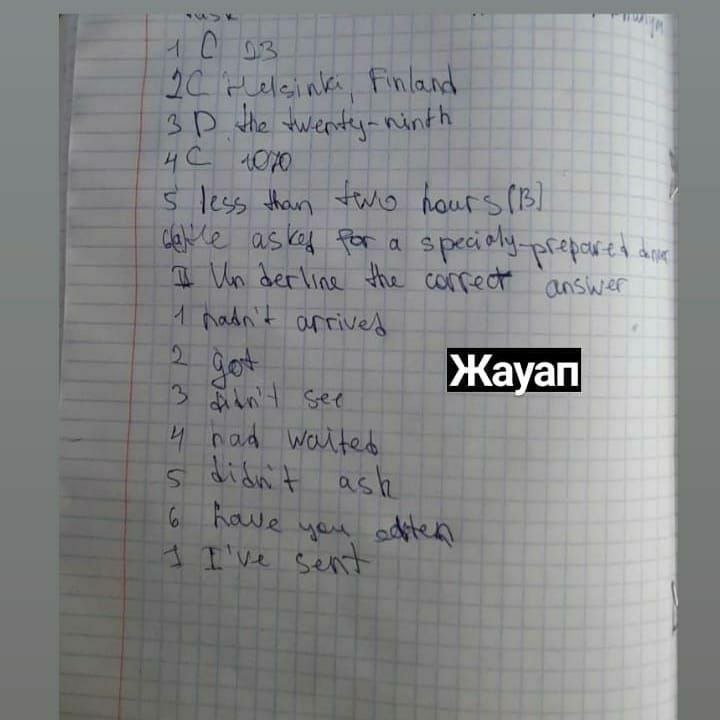 Task
1 C 23
2C Helsinki, Finland
3 D the twenty-ninth
4 C 1070
5 less than two hours (B)
6(a) He asked for a specialy-prepared dinner
II Underline the correct answer
1 hadn't arrived
2 got
Жауап
3 didn't see
4 had waited
5 didn't ask
6 have you
I've sent